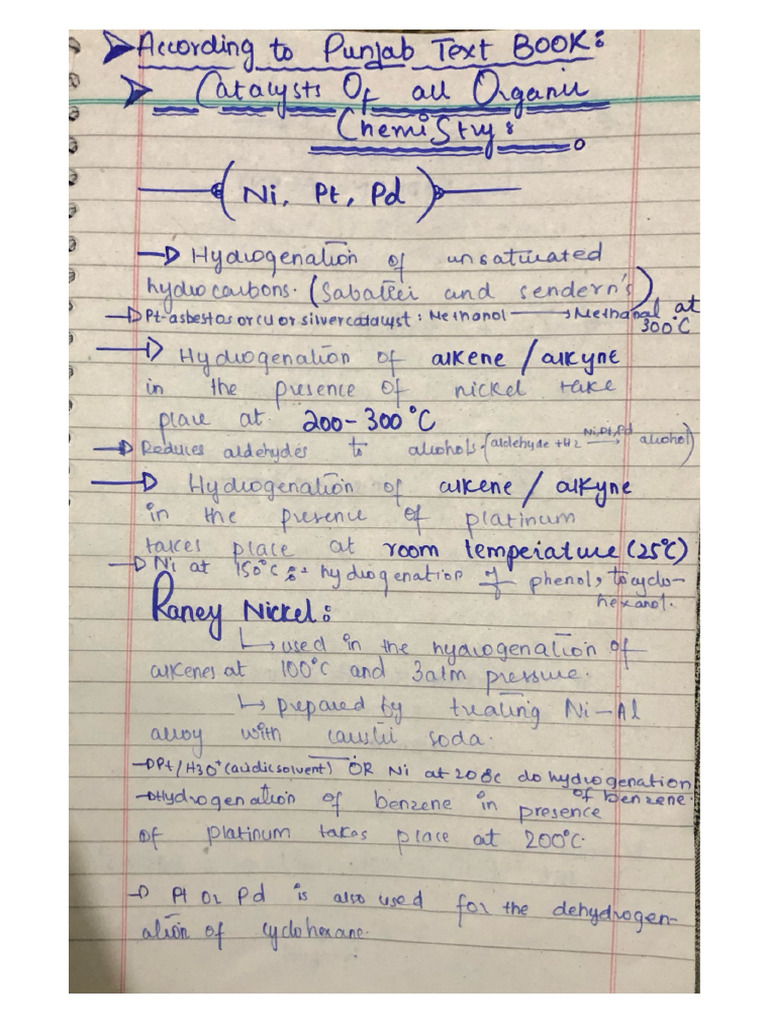 According to Punjab Text BOOK:
Catalysts Of all Organic
Chemistry:
(Ni, Pt, Pd)
Hydrogenation of unsaturated
hydrocarbons. (Sabatiei and sendern's)
Pt-asbestos or cu or silver catalyst: Methanol → Methanal at
300°C
Hydrogenation of alkene / alkyne
in the presence of nickel take
place at 200-300°C
Reduces aldehydes to alcohols. (aldehyde + H2 Ni,Pt,Pd → alcohol)
Hydrogenation of alkene / alkyne
in the presence of platinum
takes place at room temperature (25°C)
Ni at 150°C :- hydrogenation of phenol, to cyclo-
hexanol.
Raney Nickel:
↳ used in the hydrogenation of
alkenes at 100°C and 3atm pressure.
↳ prepared by treating Ni-Al
alloy with caustic soda.
Pt/H3O+ (acidic solvent) OR Ni at 208c do hydrogenation
of benzene.
Hydrogenation of benzene in presence
of platinum takes place at 200°C.
Pt or Pd is also used for the dehydrogen-
ation of cyclohexane.